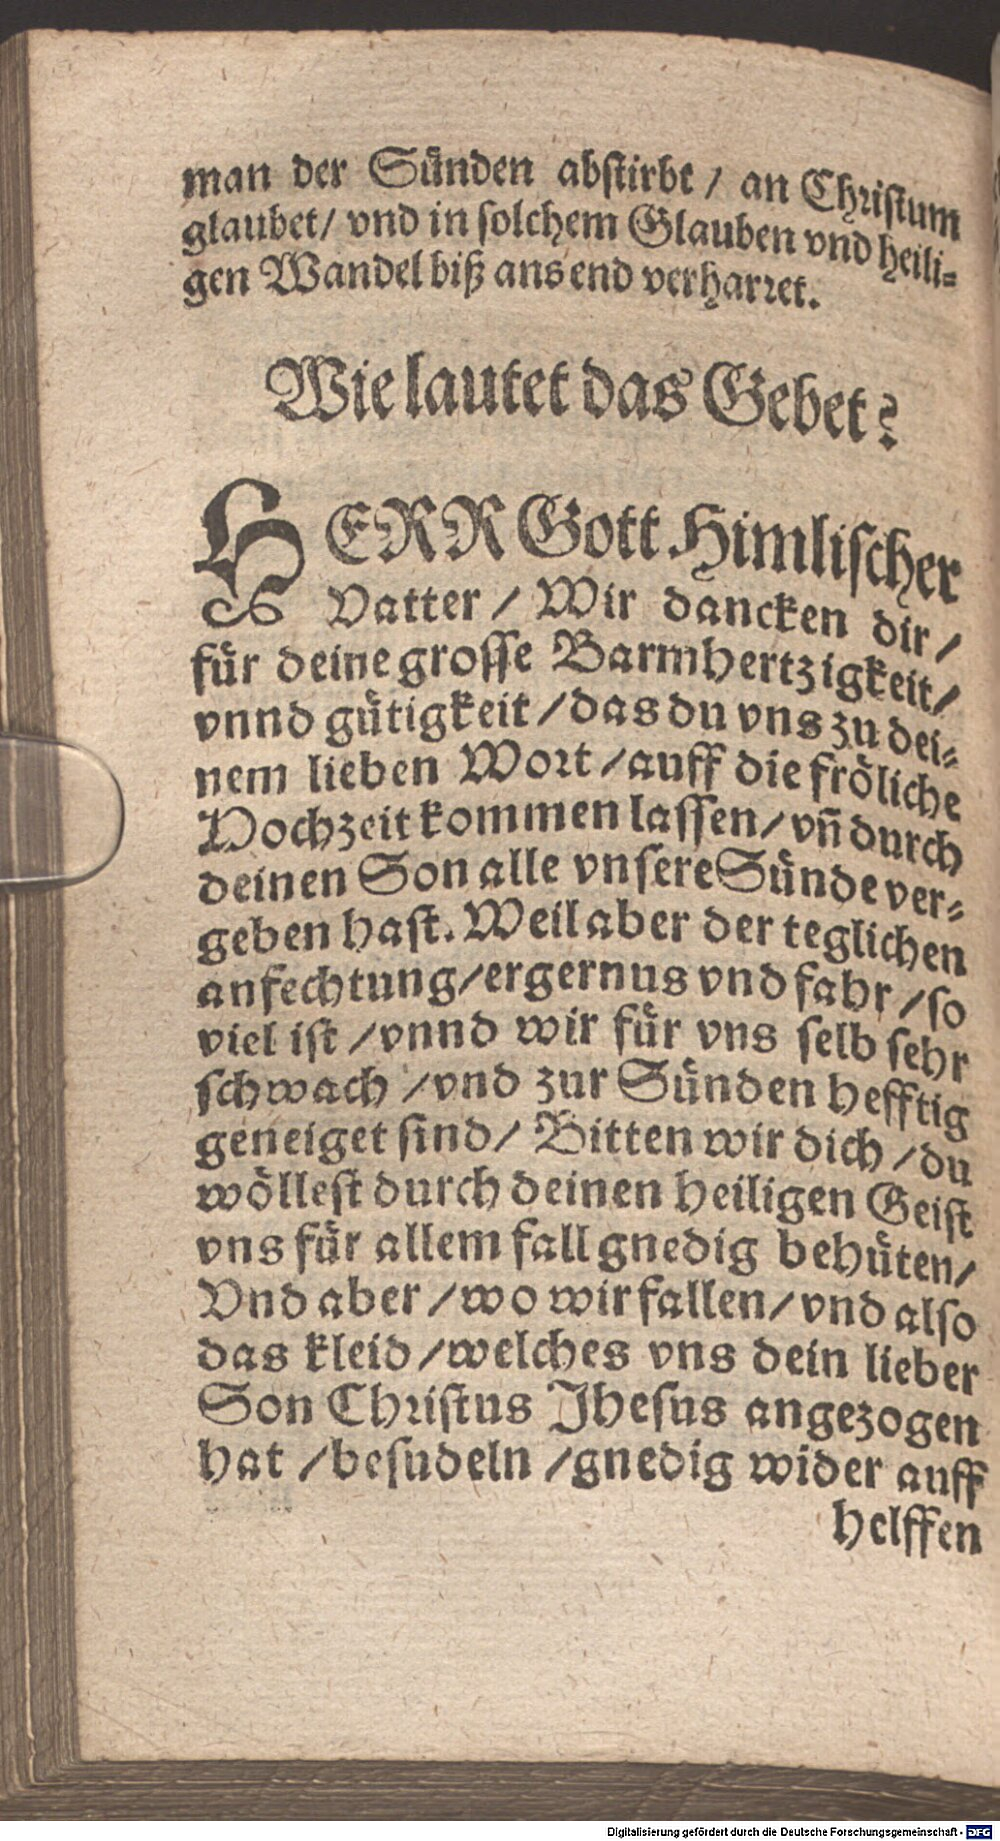 man der Sünden abstirbt / an Christum
glaubet / vnd in solchem Glauben vnd heili-
gen Wandel biß ans end verharret.
Wie lautet das Gebet?
HERR Gott Himlischer
Vatter / Wir dancken dir /
für deine grosse Barmhertzigkeit /
vnnd gütigkeit / das du vns zu dei-
nem lieben Wort / auff die fröliche
Hochzeit kommen lassen / vñ durch
deinen Son alle vnsere Sünde ver-
geben hast. Weil aber der teglichen
anfechtung / ergernus vnd fahr / so
viel ist / vnnd wir für vns selb sehr
schwach / vnd zur Sünden hefftig
geneiget sind / Bitten wir dich / du
wöllest durch deinen heiligen Geist
vns für allem fall gnedig behüten /
Vnd aber / wo wir fallen / vnd also
das kleid / welches vns dein lieber
Son Christus Jhesus angezogen
hat / besudeln / gnedig wider auff
helffen
Digitalisierung gefördert durch die Deutsche Forschungsgemeinschaft - DFG